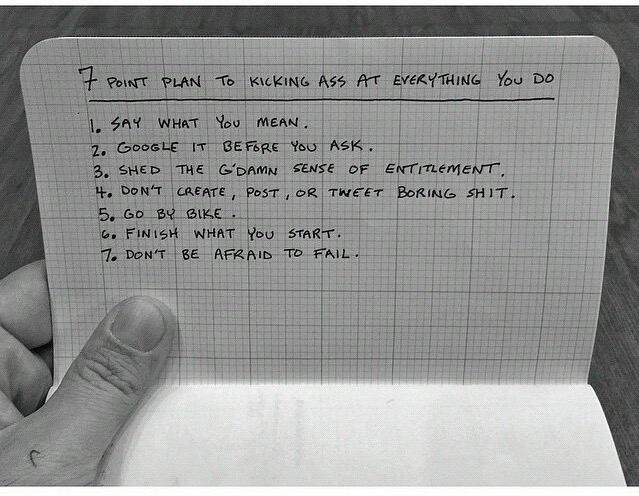 7 POINT PLAN TO KICKING ASS AT EVERYTHING YOU DO
1. SAY WHAT YOU MEAN.
2. GOOGLE IT BEFORE YOU ASK.
3. SHED THE G'DAMN SENSE OF ENTITLEMENT.
4. DON'T CREATE, POST, OR TWEET BORING SHIT.
5. GO BY BIKE.
6. FINISH WHAT YOU START.
7. DON'T BE AFRAID TO FAIL.